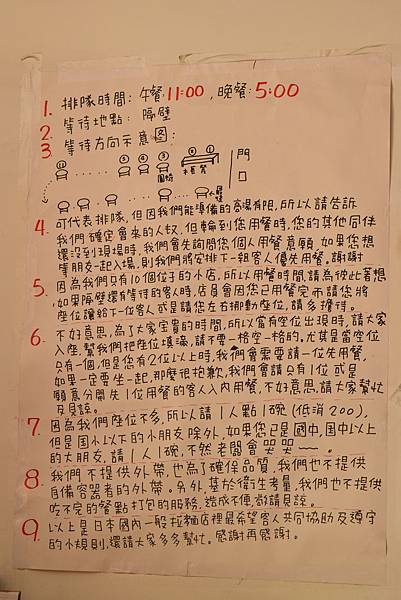 1. 排隊時間: 午餐:11:00 , 晚餐:5:00
2. 等待地點: 隔壁
3. 等待方向示意图:
⑪ ⑤ ④ ③ ② ① 門
圓椅 長椅 口
4. 可代表排隊,但因我們能準備的客湯有限,所以請告訴
我們確定會來的人数,但輪到您用餐時,您的其他同伴
還沒到現場時,我們會先詢問您個人用餐意願,如果您想
等朋友一起入場,則我們將安排下一組客人優先用餐,謝謝
5. 因為我們只有10個位子的小店,所以用餐時間,請為彼此著想
,如果隔壁還有等待的客人時,店員會因您已用餐完而請您將
座位讓給下一位客人,或是請您左右挪動座位,請多擔待。
6. 不好意思,為了大家寶貴的時間,所以當有空位出現時,請大家
入座,幫我們把座位填滿,請不要一格空一格的,尤其是當空位
只有一個,但是您有2位以上時,我們會需要請一位先用餐,
如果一定要坐一起,那麼很抱歉,我們會請只有1位或是
願意分開先1位用餐的客人入內用餐,不好意思,請大家幫忙
及見諒。
7. 因為我們座位不多,所以請1人點1碗(低消200),
但是国小以下的小朋友除外,如果您已是國中,国中以上
的大朋友,請1人1碗,不然老闆會哭哭~~。
8. 我們不提供外帶,也為了確保品質,我們也不提供
自備容器者的外帶。另外,基於衛生考量,我們也不提供
吃不完的餐點打包的服務,造成不便,敬請見諒。
9. 以上是日本國內一般拉麵店裡最希望客人共同協助及遵守
的小規則,還請大家多多幫忙。感謝再感謝。